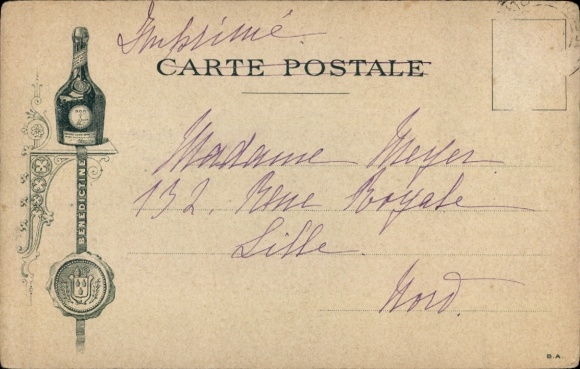 Imprimé.
CARTE POSTALE
Madame Meyer
132, Rue Royale
Lille.
Nord.
BÉNÉDICTINE
B.A.